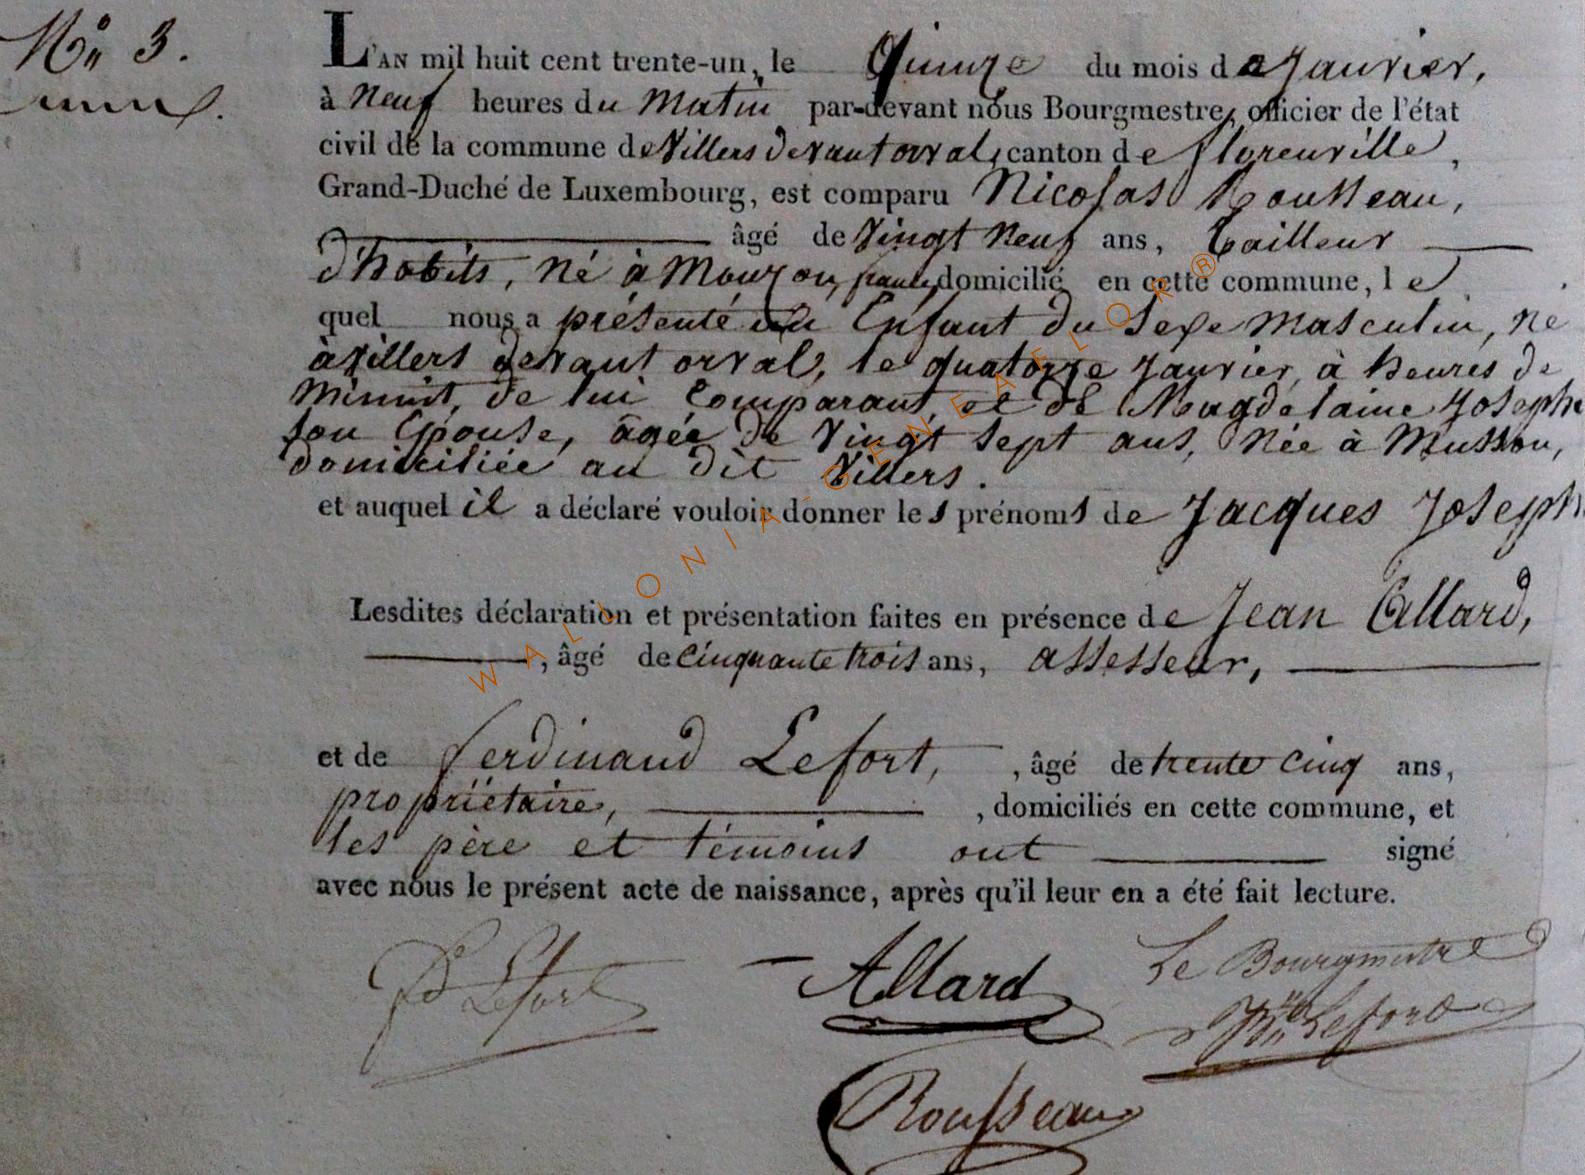 Nº 3.
L'AN mil huit cent trente-un, le Quinze du mois de Janvier,
à Neuf heures du Matin par-devant nous Bourgmestre, officier de l'état
civil de la commune de Villers devant orval, canton de florenville,
Grand-Duché de Luxembourg, est comparu Nicolas Rousseau,
âgé de Vingt Neuf ans, Tailleur
d'habits, Né à Mouzon, france, domicilié en cette commune, le
quel nous a présenté un Enfant du Sexe Masculin, né
à Villers devant orval, le quatorze Janvier, à heures de
Minuit, de lui Comparant, et de Magdelaine Joseph
son Epouse, âgée de Vingt Sept ans, Née à Musson,
domiciliée au dit Villers.
et auquel il a déclaré vouloir donner les prénoms de Jacques Joseph
Lesdites déclaration et présentation faites en présence de Jean Allard,
, âgé de Cinquante trois ans, assesseur,
et de ferdinand Lefort, , âgé de trente Cinq ans,
propriétaire, , domiciliés en cette commune, et
les père et témoins ont signé
avec nous le présent acte de naissance, après qu'il leur en a été fait lecture.
Lefort Allard Le Bourgmestre
Lefort
Rousseau
WALLONIA-GENEAELOR®